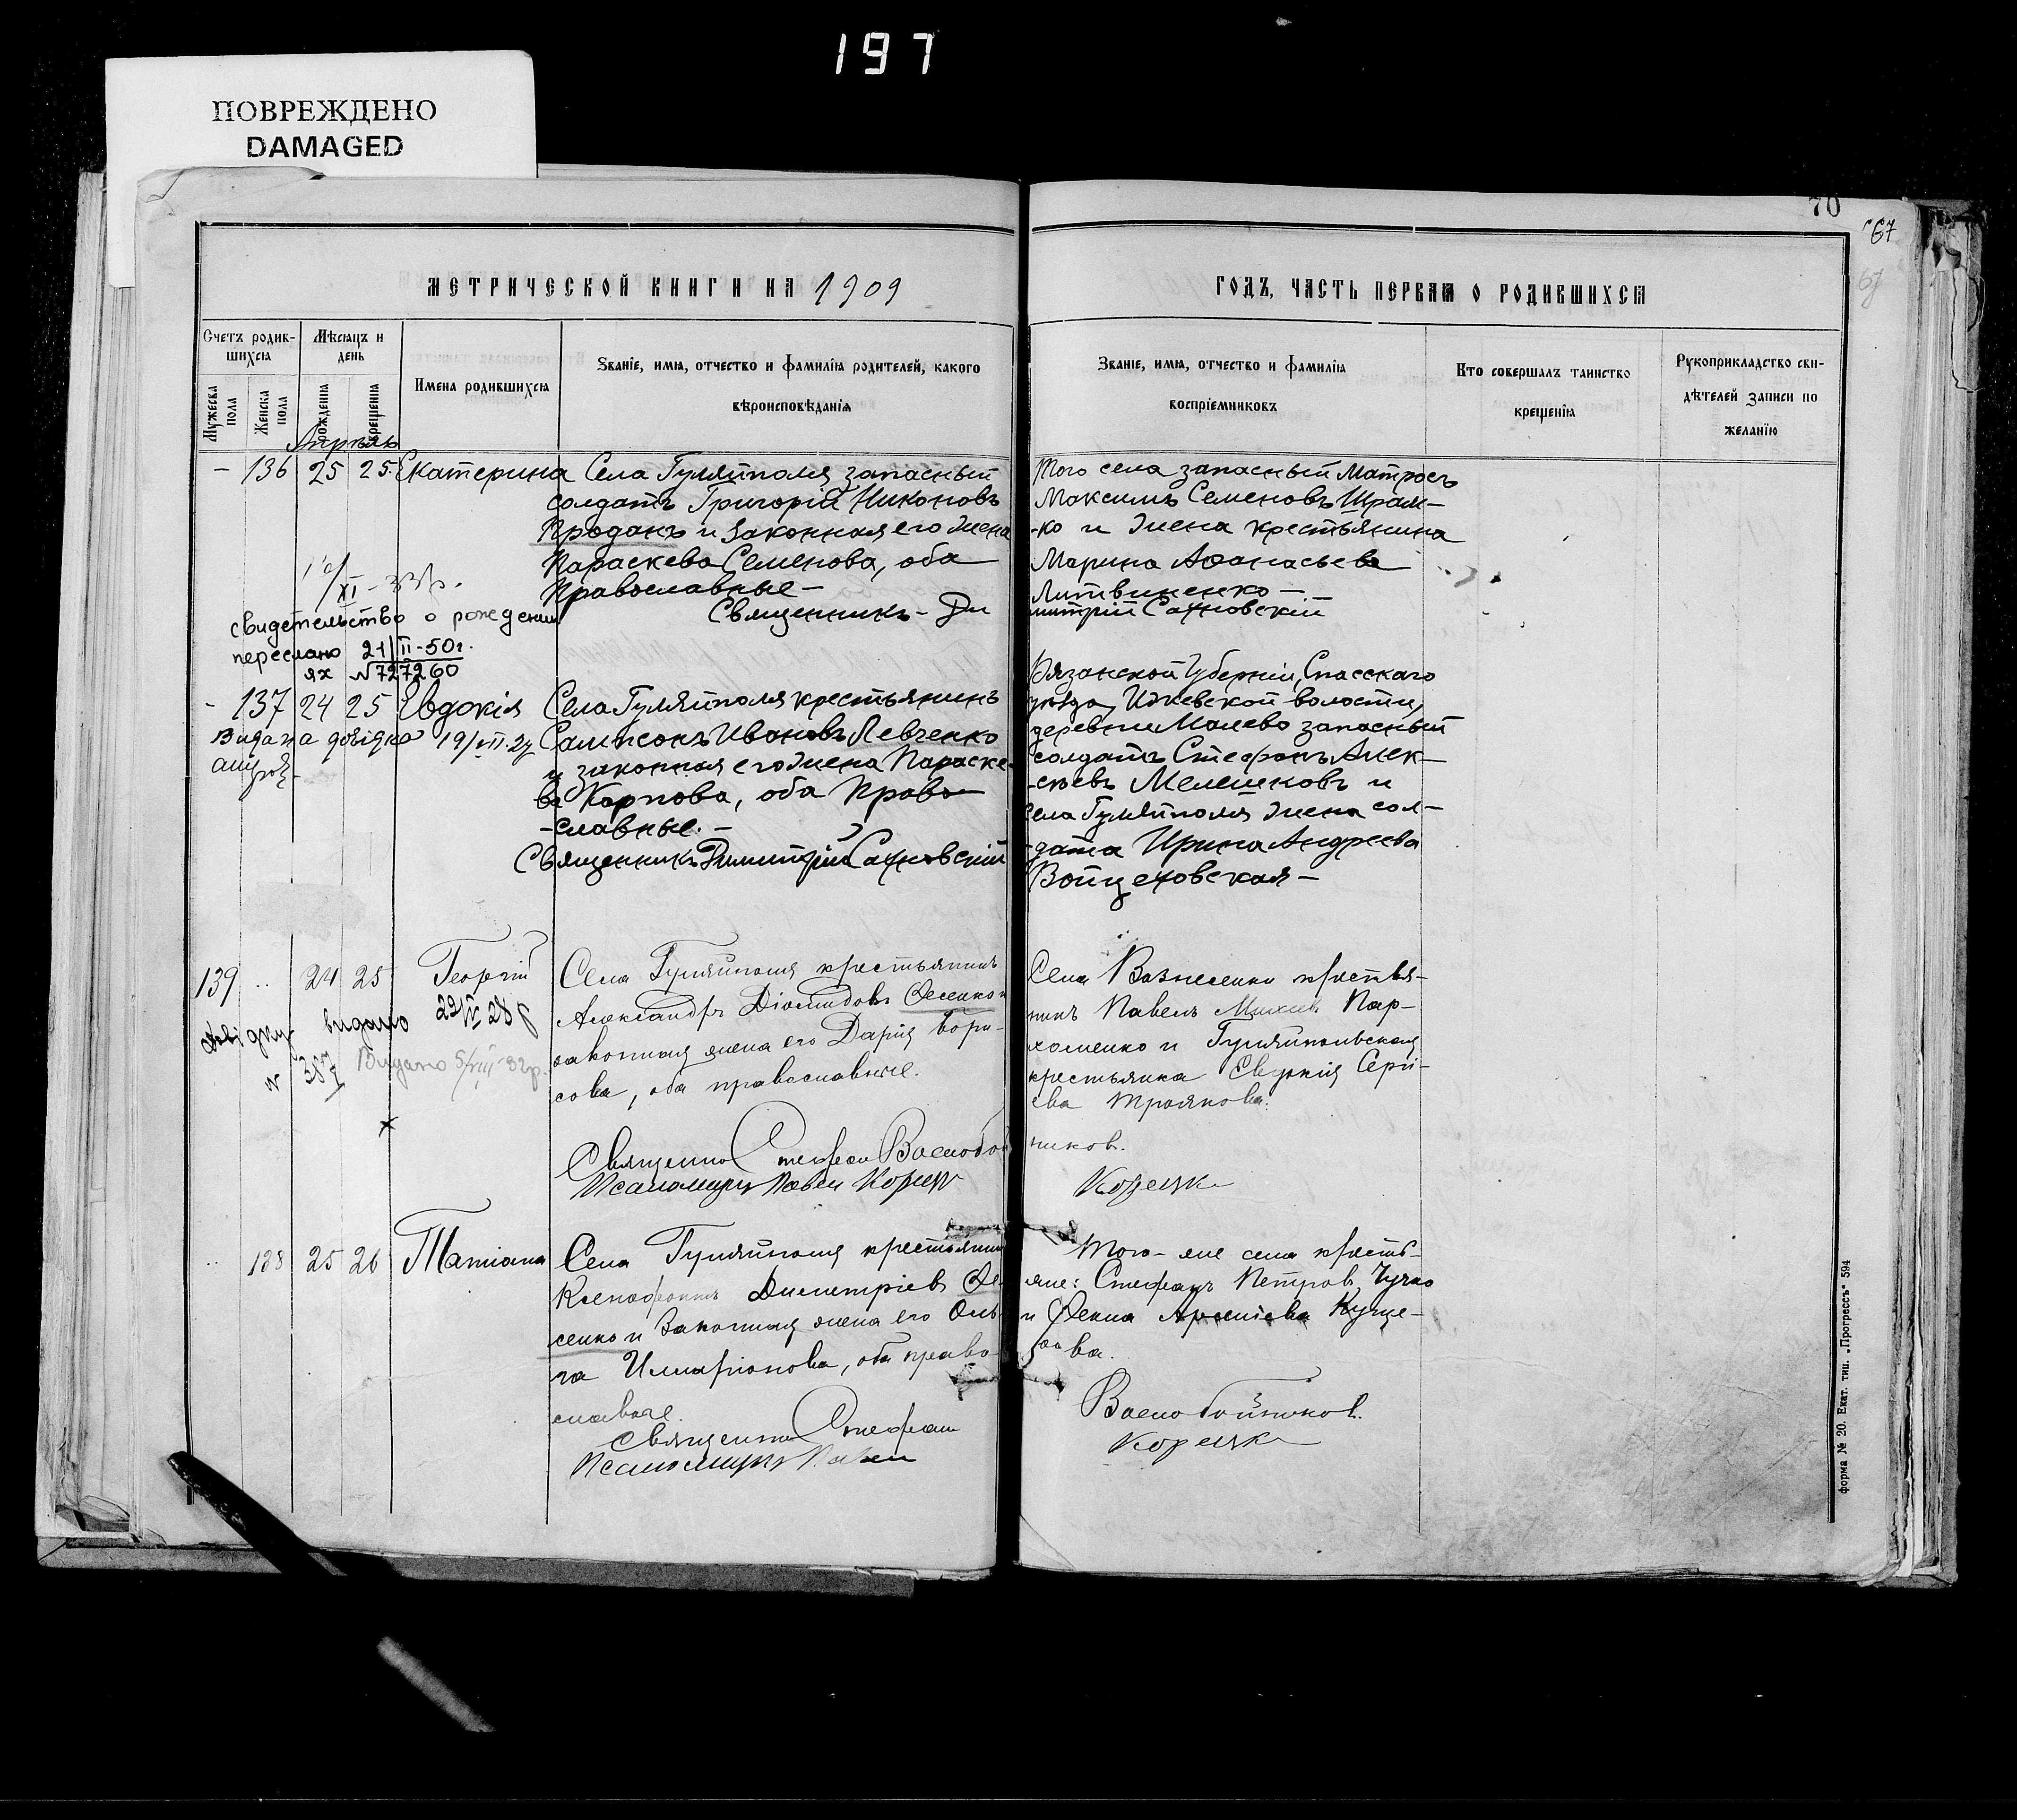 197
ПОВРЕЖДЕНО
DAMAGED
70
67
67
МЕТРИЧЕСКОЙ КНИГИ НА 1909
ГОДЪ, ЧАСТЬ ПЕРВАЯ О РОДИВШИХСЯ
Счетъ родив-
шихся
Мѣсяцъ и
день
Мужеска
пола
Женска
пола
рожденія
крещенія
Имена родившихся
Званіе, имя, отчество и фамилія родителей, какого
вѣроисповѣданія
Званіе, имя, отчество и фамилія
воспріемниковъ
Кто совершалъ таинство
крещенія
Рукоприкладство сви-
дѣтелей записи по
желанію
Апрѣль
– 136 25 25 Екатерина
Села Гуляйполя запасный
солдатъ Григорій Никоновъ
Проданъ и законная его жена
Параскева Семенова, оба
Православные –
Священникъ – Ди
митрій Сахновскій
Того села запасный Матросъ
Максимъ Семеновъ Шрам-
-ко и жена крестьянина
Марина Аѳанасьева
Литвиненко –
XI – 33р.
свидетельство о рождении
переслано 21/II-50г.
ях № 727260
- 137 24 25 Евдокія
Села Гуляйполя крестьянинъ
Сампсонъ Ивановъ Левченко
и законная его жена Параске-
ва Карпова, оба Право-
-славные. –
Священникъ Димитрій Сахновскій
Видана довідка 19/VII.27
Рязанской Губерніи, Спасскаго
уѣзда, Ижевской волости,
деревни Малево запасный
солдатъ Стефанъ Алек-
-сѣевъ Мелешковъ и
села Гуляйполя жена сол-
-дата Ирина Андреева
Войцеховская –
139 .. 24 25 Георгій
Села Гуляйполя крестьянинъ
Александръ Діомидовъ Ѳесенко и
законная жена его Дарія Бори-
сова, оба православные.
Довідку видано 22/IV 28 р
№ 387
Видано 5/VIII-32р.
Села Вознесенки крестья-
нинъ Павелъ Пар-
хоменко и Гуляйпольская
крестьянка Евдокія Серги-
ева Троянова.
Священник Стефан Воснобой
ников.
Псаломщик Павел Корецк
Корецк
.. 138 25 26 Татіана
Села Гуляйполя крестьянин
Ксенофонтъ Димитріевъ Ѳе-
сенко и законная жена его Оль-
га Илларіонова, оба право-
славные.
Того-же села кресть-
яне: Стефанъ Петров Чучко
и Ѳекла Арсеніева Кузне-
цова.
Священник Стефан
Воснобойников.
Псаломщик Павел
Корецк
форма № 20. Екат. тип. „Прогрессъ" 594